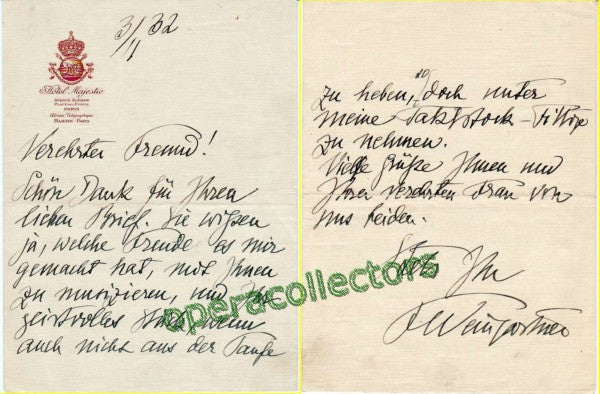 3/1 32
Hôtel Majestic
AVENUE KLÉBER
PLACE DE L'ÉTOILE
PARIS
Adresse Télégraphique
MAJESTIC PARIS
Verehrter Freund!
Schön Dank für Ihren
lieben Brief. Sie wissen
ja, welche Freude es mir
gemacht hat, mit Ihnen
zu musizieren, und Ihr
geistvolles Stück, wenn
auch nicht aus der Taufe
zu heben, so doch unter
meine Taktstock-Fittige
zu nehmen.
Viele Grüße Ihnen und
Ihrer verehrten Frau von
uns beiden.
Stets Ihr
FWeingartner
operacollectors